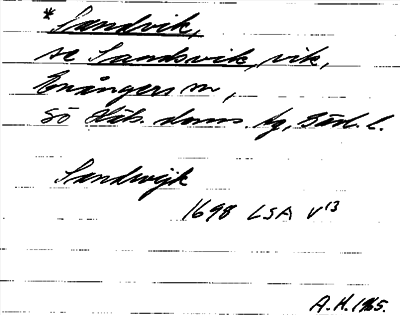 * Sandvik,
se Sandsvik, vik,
Enångers sn,
SÖ Häls. doms. tg, Gävl. l.
Sandwijk
1698 LSA V 13
A.H. 1965.